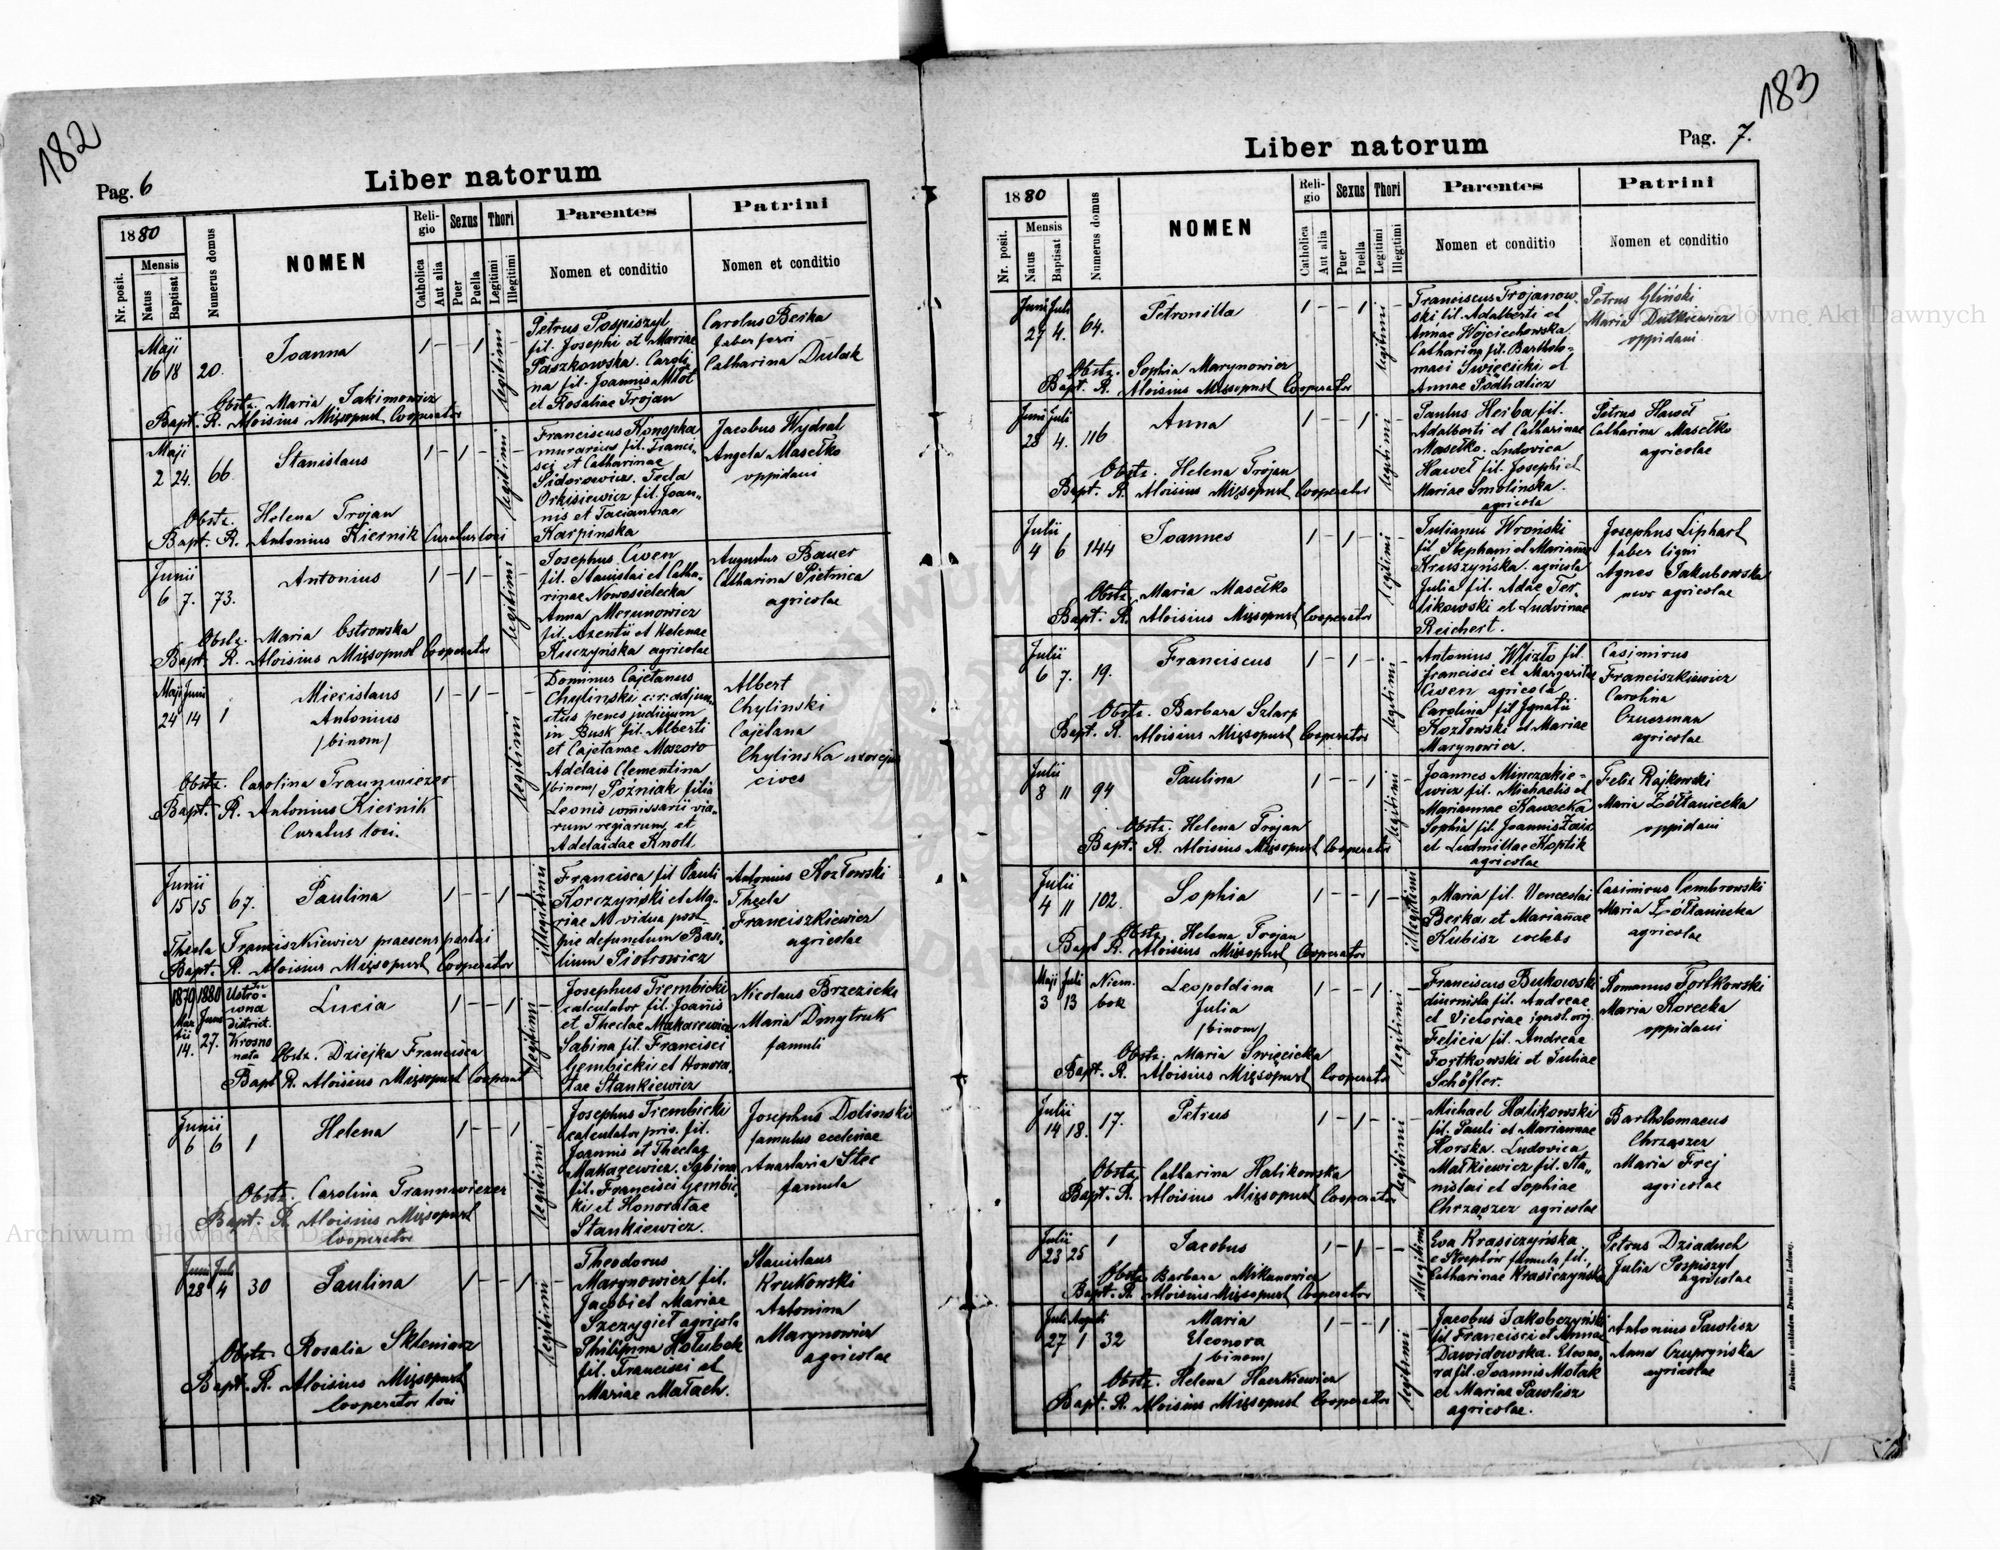 182
Pag. 6
Liber natorum
1880
Nr. posit.
Mensis
Natus
Baptisat
Numerus domus
NOMEN
Religio
Catholica
Aut alia
Sexus
Puer
Puella
Thori
Legitimi
Illegitimi
Parentes
Nomen et conditio
Patrini
Nomen et conditio
Maji
16 18 20.
Joanna
1 - - 1 -
legitimi
Petrus Pospiszyl
fil. Josephi et Mariae
Paszkowska. Caroli
na fil. Joannis Młot
et Rosaliae Trojan
Carolus Berka
faber feri
Catharina Dulak
Obstz. Maria Jakimowicz
Bapt. R. Aloisius Mięsopust Cooperator
Maji
2 24. 66
Stanislaus
1 - 1 - -
legitimi
Franciscus Konopka
murarius fil. Franci-
sci et Catharinae
Sidorowicz. Tecla
Orkisiewicz fil. Joan-
nis et Taciannae
Karpinska
Jacobus Wydral
Angela Masełko
oppidani
Obstz. Helena Trojan
Bapt. R. Antonius Kiernik Curatus loci
Junii
6 7. 73.
Antonius
1 - 1 - -
legitimi
Josephus Cwen
fil. Stanislai et Catha-
rinae Nowosielecka
Anna Morunowicz
fil. Axentii et Helenae
Kuczyńska agricolae
Augustus Bauer
Catharina Pietnica
agricolae
Obstz. Maria Ostrowska
Bapt. R. Aloisius Mięsopust Cooperator
Maji Junii
24 14 1
Miecislaus
Antonius
/binom/
1 - 1 - -
legitimi
Dominus Cajetanus
Chylinski c:r: adjun-
ctus penes judicium
in Busk fil. Alberti
et Cajetanae Moszoro
Adelais Clementina
/binom/ Pożniak filia
Leonis comissarii via-
rum regiarum et
Adelaidae Knoll
Albert
Chylinski
Cajetana
Chylinska uxor ejus
cives
Obstz. Carolina Traunwiezer
Bapt. R. Antonius Kiernik
Curatus loci.
Junii
15 15 67.
Paulina
1 - - 1 -
illegitimi
Francisca fil Pauli
Korczyński et Ma-
riae N vidua post
pie defunctum Basi-
lium Piotrowicz
Antonius Kozłowski
Thecla
Franciszkiewicz
agricolae
Thecla Franciszkiewicz praesens partui
Bapt. R. Aloisius Mięsopust Cooperator
1879 1880
Mar Junii
tii
14. 27.
Ustro-
wna
district.
Krosno
nata
Lucia
1 - - 1 -
legitimi
Josephus Trembicki
calculator fil. Joannis
et Theclae Makarewicz
Sabina fil. Francisci
Gembicki et Honora-
tae Stankiewicz
Nicolaus Brzezicki
Maria Dmytruk
famuli
Obstz. Dziejka Francisca
Bapt R. Aloisius Mięsopust Cooperat
Junii
6 6 1
Helena
1 - - 1 -
legitimi
Josephus Trembicki
calculator priv. fil.
Joannis et Theclae
Makarewicz. Sabina
fil. Francisci Gembic-
ki et Honoratae
Stankiewicz.
Josephus Dolinski
famulus ecclesiae
Anastasia Stec
famula
Obstz. Carolina Traunwiezer
Bapt. R. Aloisius Mięsopust
Cooperator
Junii Julii
28 4 30
Paulina
1 - - 1 -
legitimi
Theodorus
Marynowicz fil.
Jacobi et Mariae
Szczygieł agricola
Philippina Hołubek
fil. Francisci et
Mariae Małach.
Stanislaus
Krukowski
Antonina
Marynowicz
agricolae
Obstz. Rosalia Skleniarz
Bapt. R. Aloisius Mięsopust
Cooperator loci
183
Liber natorum
Pag. 7.
1880
Nr. posit.
Mensis
Natus
Baptisat
Numerus domus
NOMEN
Religio
Catholica
Aut alia
Sexus
Puer
Puella
Thori
Legitimi
Illegitimi
Parentes
Nomen et conditio
Patrini
Nomen et conditio
Junii Julii
27 4. 64.
Petronilla
1 - - 1 -
legitimi
Franciscus Trojanow-
ski fil. Adalberti et
Annae Wojciechowska.
Catharina fil. Bartholo-
maei Swięcicki et
Annae Podhalicz
Petrus Gliński
Maria Dutkiewicz
oppidani
Obstz. Sophia Marynowicz
Bapt. R. Aloisius Mięsopust Cooperator
Junii Julii
28 4. 116
Anna
1 - - 1 -
legitimi
Paulus Herba fil.
Adalberti et Catharinae
Masełko. Ludovica
Haweł fil. Josephi et
Mariae Smolinska.
agricola
Petrus Haweł
Catharina Masełko
agricolae
Obstz. Helena Trojan
Bapt. R. Aloisius Mięsopust Cooperator
Julii
4 6 144
Joannes
1 - 1 - -
legitimi
Julianus Wroński
fil. Stephani et Mariannae
Kruszyńska. agricola
Julia fil. Adae Ter-
likowski et Ludvinae
Reichert.
Josephus Liphart
faber ligni
Agnes Jakubowska
uxor agricolae
Obstz. Maria Masełko
Bapt. R. Aloisius Mięsopust Cooperator
Julii
6 7. 19.
Franciscus
1 - 1 - -
legitimi
Antonius Wszło fil.
Francisci et Margaritae
Cwen agricola
Carolina fil Ignatii
Kozłowski et Mariae
Marynowicz.
Casimirus
Franciszkiewicz
Carolina
Czuczman
agricolae
Obstz. Barbara Szlarp
Bapt. R. Aloisius Mięsopust Cooperator
Julii
8 11 94
Paulina
1 - - 1 -
legitimi
Joannes Minczakie-
wicz fil. Michaelis et
Mariannae Kawecka
Sophia fil. Joannis Zaik
et Ludmillae Koptik
agricolae
Felix Rajkowski
Maria Żółtaniecka
oppidani
Obstz. Helena Trojan
Bapt. R. Aloisius Mięsopust Cooperator
Julii
4 11 102.
Sophia
1 - - 1 -
illegitimi
Maria fil. Venceslai
Berka et Mariannae
Kubisz coelebs
Casimirus Cembrowski
Maria Żółtaniecka
agricolae
Obstz. Helena Trojan
Bapt R. Aloisius Mięsopust Cooperator
Maji Julii
3 13
Niem-
bok
Leopoldina
Julia
/binom/
1 - - 1 -
legitimi
Franciscus Bukowski
diurnista fil. Andreae
et Victoriae ignot. orig.
Felicia fil. Andreae
Fortkowski et Juliae
Schöfler.
Romanus Fortkowski
Maria Korecka
oppidani
Obstz. Maria Swięcicka
Bapt. R. Aloisius Mięsopust Cooperator
Julii
14 18. 17.
Petrus
1 - 1 - -
legitimi
Michael Halikowski
fil. Pauli et Mariannae
Horska. Ludovica
Małkiewicz fil. Sta-
nislai et Sophiae
Chrząszcz agricolae
Bartholomaeus
Chrząszcz
Maria Frej
agricolae
Obstz. Catharina Halikowska
Bapt. R. Aloisius Mięsopust Cooperator
Julii
23 25 1
Jacobus
1 - 1 - -
illegitimi
Eva Krasiczyńska
e Streptów famula fil.
Catharinae Krasiczyńska
Petrus Dziaduch
Julia Pospiszyl
agricolae
Obstz. Barbara Mikanowicz
Bapt. R. Aloisius Mięsopust Cooperator
Julii Augusti
27 1 32
Maria
Eleonora
/binom/
1 - - 1 -
legitimi
Jacobus Jakobczyński
fil Francisci et Annae
Dawidowska. Eleono-
ra fil. Joannis Motak
et Mariae Pawlisz
agricolae.
Antonius Pawlisz
Anna Czupryńska
agricolae
Obstz. Helena Hackiewicz
Bapt. R. Aloisius Mięsopust Cooperator
Drukiem i nakładem Drukarni Ludowej.
Archiwum Główne Akt Dawnych